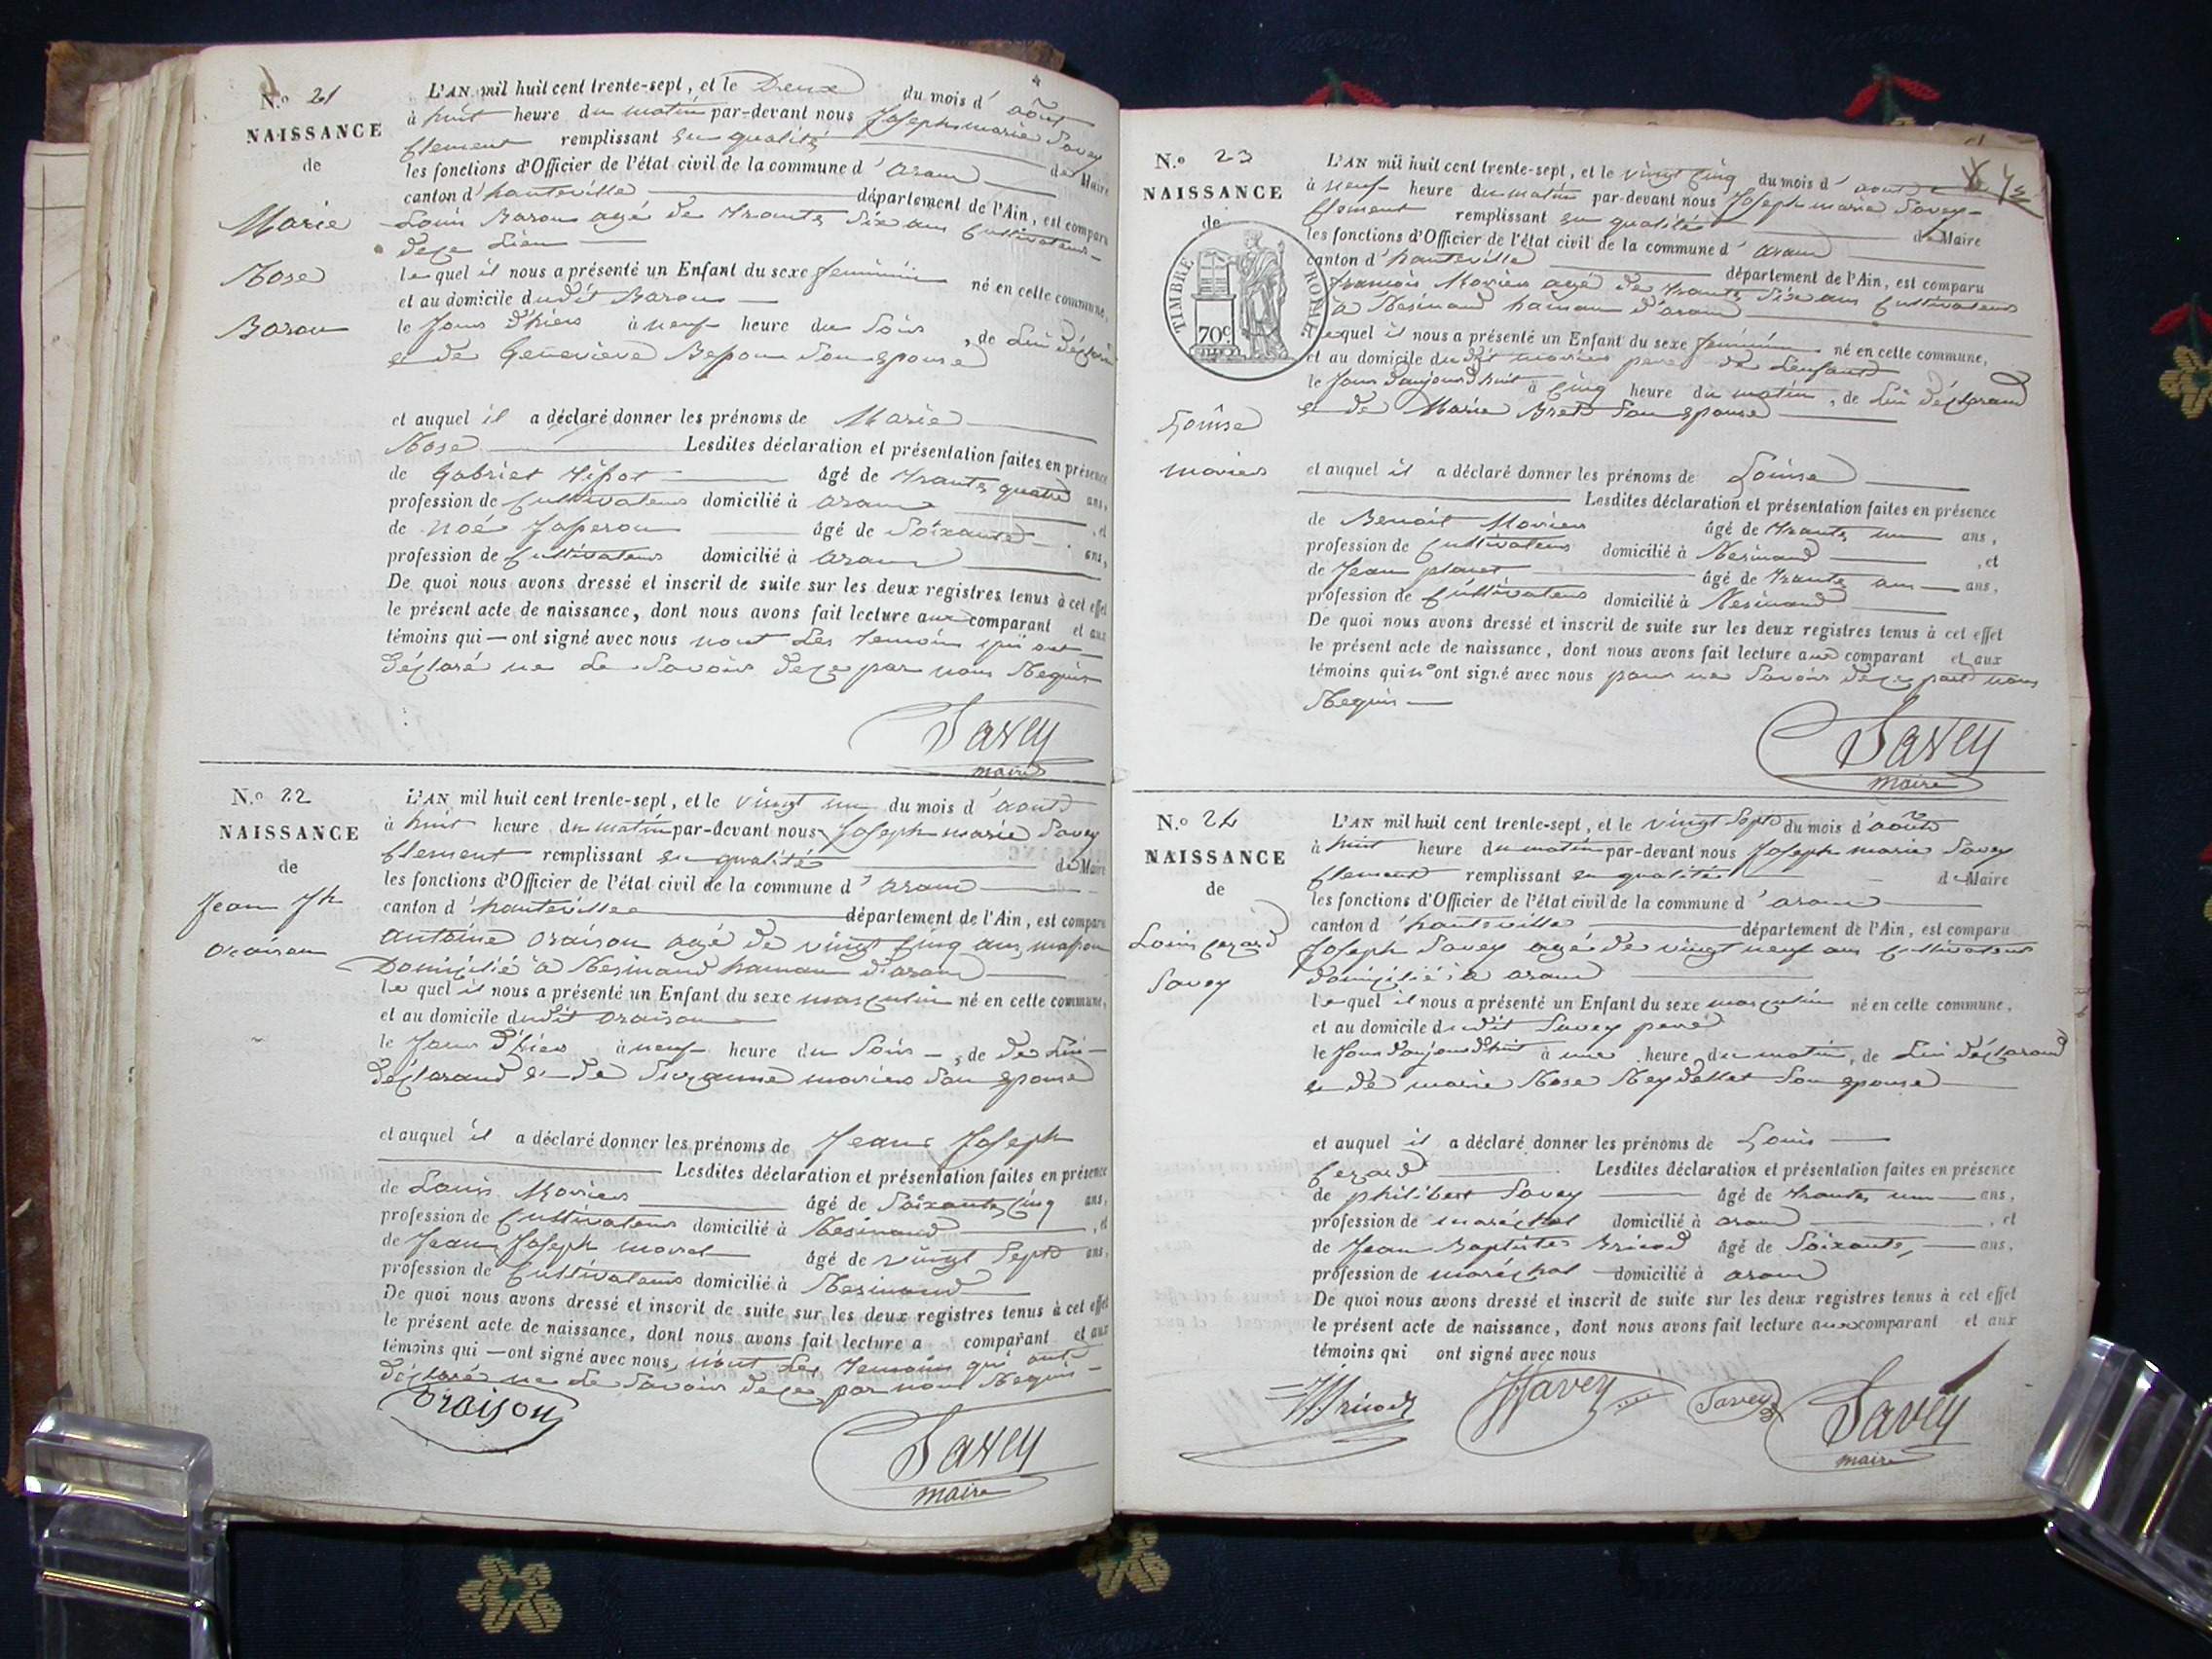 N.o 21
NAISSANCE
de
Marie
Rose
Baron
L'AN mil huit cent trente-sept, et le Deux du mois d'août
à huit heure du matin par-devant nous Joseph marie Savey
Clement remplissant en qualité de Maire
les fonctions d'Officier de l'état civil de la commune d'aran
canton d'hauteville département de l'Ain, est comparu
Louis Baron agé de trante six ans Cultivateur
dece Lieu
lequel il nous a présenté un Enfant du sexe feminin né en cette commune,
et au domicile dudit Baron
le Jour d'hier à neuf heure du Soir, de Lui déclarant
e de Genevieve Son epouse
et auquel il a déclaré donner les prénoms de Marie
Rose Lesdites déclaration et présentation faites en présence
de Gabriel Tipot âgé de trante quatre ans,
profession de Cultivateur domicilié à aran
de Noé Japeron âgé de Soixante ans, et
profession de Cultivateur domicilié à aran
De quoi nous avons dressé et inscrit de suite sur les deux registres tenus à cet effet
le présent acte de naissance, dont nous avons fait lecture aux comparant et aux
témoins qui — ont signé avec nous nont Les temoins qui ont
déclaré ne Le Savoir dece par nous Requis
Savey
maire
N.o 22
NAISSANCE
de
Jean Jh
Oraison
L'AN mil huit cent trente-sept, et le vingt un du mois d'aout
à huit heure du matin par-devant nous Joseph marie Savey
Clement remplissant en qualité de Maire
les fonctions d'Officier de l'état civil de la commune d'aran
canton d'hauteville département de l'Ain, est comparu
antoine Oraison agé de vingt Cinq ans, masson
Domicilié à Resinand hamau d'aran
lequel il nous a présenté un Enfant du sexe masculin né en cette commune,
et au domicile dudit Oraison
le Jour d'hier à neuf heure du Soir, de de Lui
déclarand e de Suzanne moriers Son epouse
et auquel il a déclaré donner les prénoms de Jean Joseph
Lesdites déclaration et présentation faites en présence
de Louis Moriers âgé de Soixante Cinq ans,
profession de Cultivateur domicilié à Resinand, et
de Jean Joseph morel âgé de vingt Sept ans,
profession de Cultivateur domicilié à Resinand
De quoi nous avons dressé et inscrit de suite sur les deux registres tenus à cet effet
le présent acte de naissance, dont nous avons fait lecture a comparant et aux
témoins qui — ont signé avec nous, nont Les temoins qui ont
déclaré ne Le Savoir dece par nous Requis
Oraison
Savey
maire
N.o 23
NAISSANCE
de
TIMBRE ROYAL
70c
Louise
moriers
L'AN mil huit cent trente-sept, et le vingt Cinq du mois d'aout
à neuf heure du matin par-devant nous Joseph marie Savey
Clement remplissant en qualité de Maire
les fonctions d'Officier de l'état civil de la commune d'aran
canton d'hauteville département de l'Ain, est comparu
francois Moriers agé de trante Six ans Cultivateur
à Resinand hamau d'aran
lequel il nous a présenté un Enfant du sexe feminin né en cette commune,
et au domicile dudit moriers pere de Lenfant
le Jour daujourdhuit à Cinq heure du matin, de Lui déclarand
e de Marie Bret Son epouse
et auquel il a déclaré donner les prénoms de Louise
Lesdites déclaration et présentation faites en présence
de Benoit Moriers âgé de trante un ans,
profession de Cultivateur domicilié à Resinand, et
de Jean âgé de trante ans ans,
profession de Cultivateur domicilié à Resinand
De quoi nous avons dressé et inscrit de suite sur les deux registres tenus à cet effet
le présent acte de naissance, dont nous avons fait lecture aux comparant et aux
témoins qui n'ont signé avec nous pour ne Savoir dece part nous
Requis
Savey
maire
N.o 24
NAISSANCE
de
Louis Cezard
Savey
L'AN mil huit cent trente-sept, et le vingt Sept du mois d'août
à huit heure du matin par-devant nous Joseph marie Savey
Clement remplissant en qualité de Maire
les fonctions d'Officier de l'état civil de la commune d'aran
canton d'hauteville département de l'Ain, est comparu
Joseph Savey agé de vingt neuf ans Cultivateur
domicilié à aran
lequel il nous a présenté un Enfant du sexe masculin né en cette commune,
et au domicile dudit Savey peré
le Jour daujourdhuit à une heure du matin, de Lui déclarand
e de marie Rose Reydellet Son epouse
et auquel il a déclaré donner les prénoms de Louis
Cezard Lesdites déclaration et présentation faites en présence
de philibert Savey âgé de trante un ans,
profession de maréchal domicilié à aran, et
de Jean Baptiste Bricod âgé de Soixante, ans,
profession de maréchal domicilié à aran
De quoi nous avons dressé et inscrit de suite sur les deux registres tenus à cet effet
le présent acte de naissance, dont nous avons fait lecture aux comparant et aux
témoins qui ont signé avec nous
Bricod Savey Savey Savey
maire